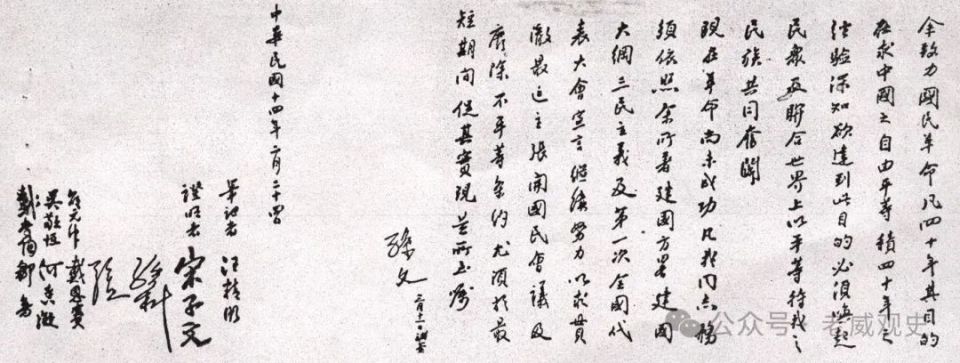 余致力國民革命凡四十年其目的
在求中國之自由平等積四十年之
經驗深知欲達到此目的必須喚起
民衆及聯合世界上以平等待我之
民族共同奮鬪
現在革命尚未成功凡我同志務
須依照余所著建國方畧建國
大綱三民主義及第一次全國代
表大會宣言繼續努力以求貫
澈最近主張開國民會議及
廢除不平等条约尤須於最
短期间促其實現是所至嘱
孫文 三月十一日補簽
中華民國十四年二月二十四日
筆記者 汪精衛
證明者 宋子文
孫科
邵元冲 戴恩賽
吳敬恒 何香凝
戴季陶 鄒魯
公众号·老威观史